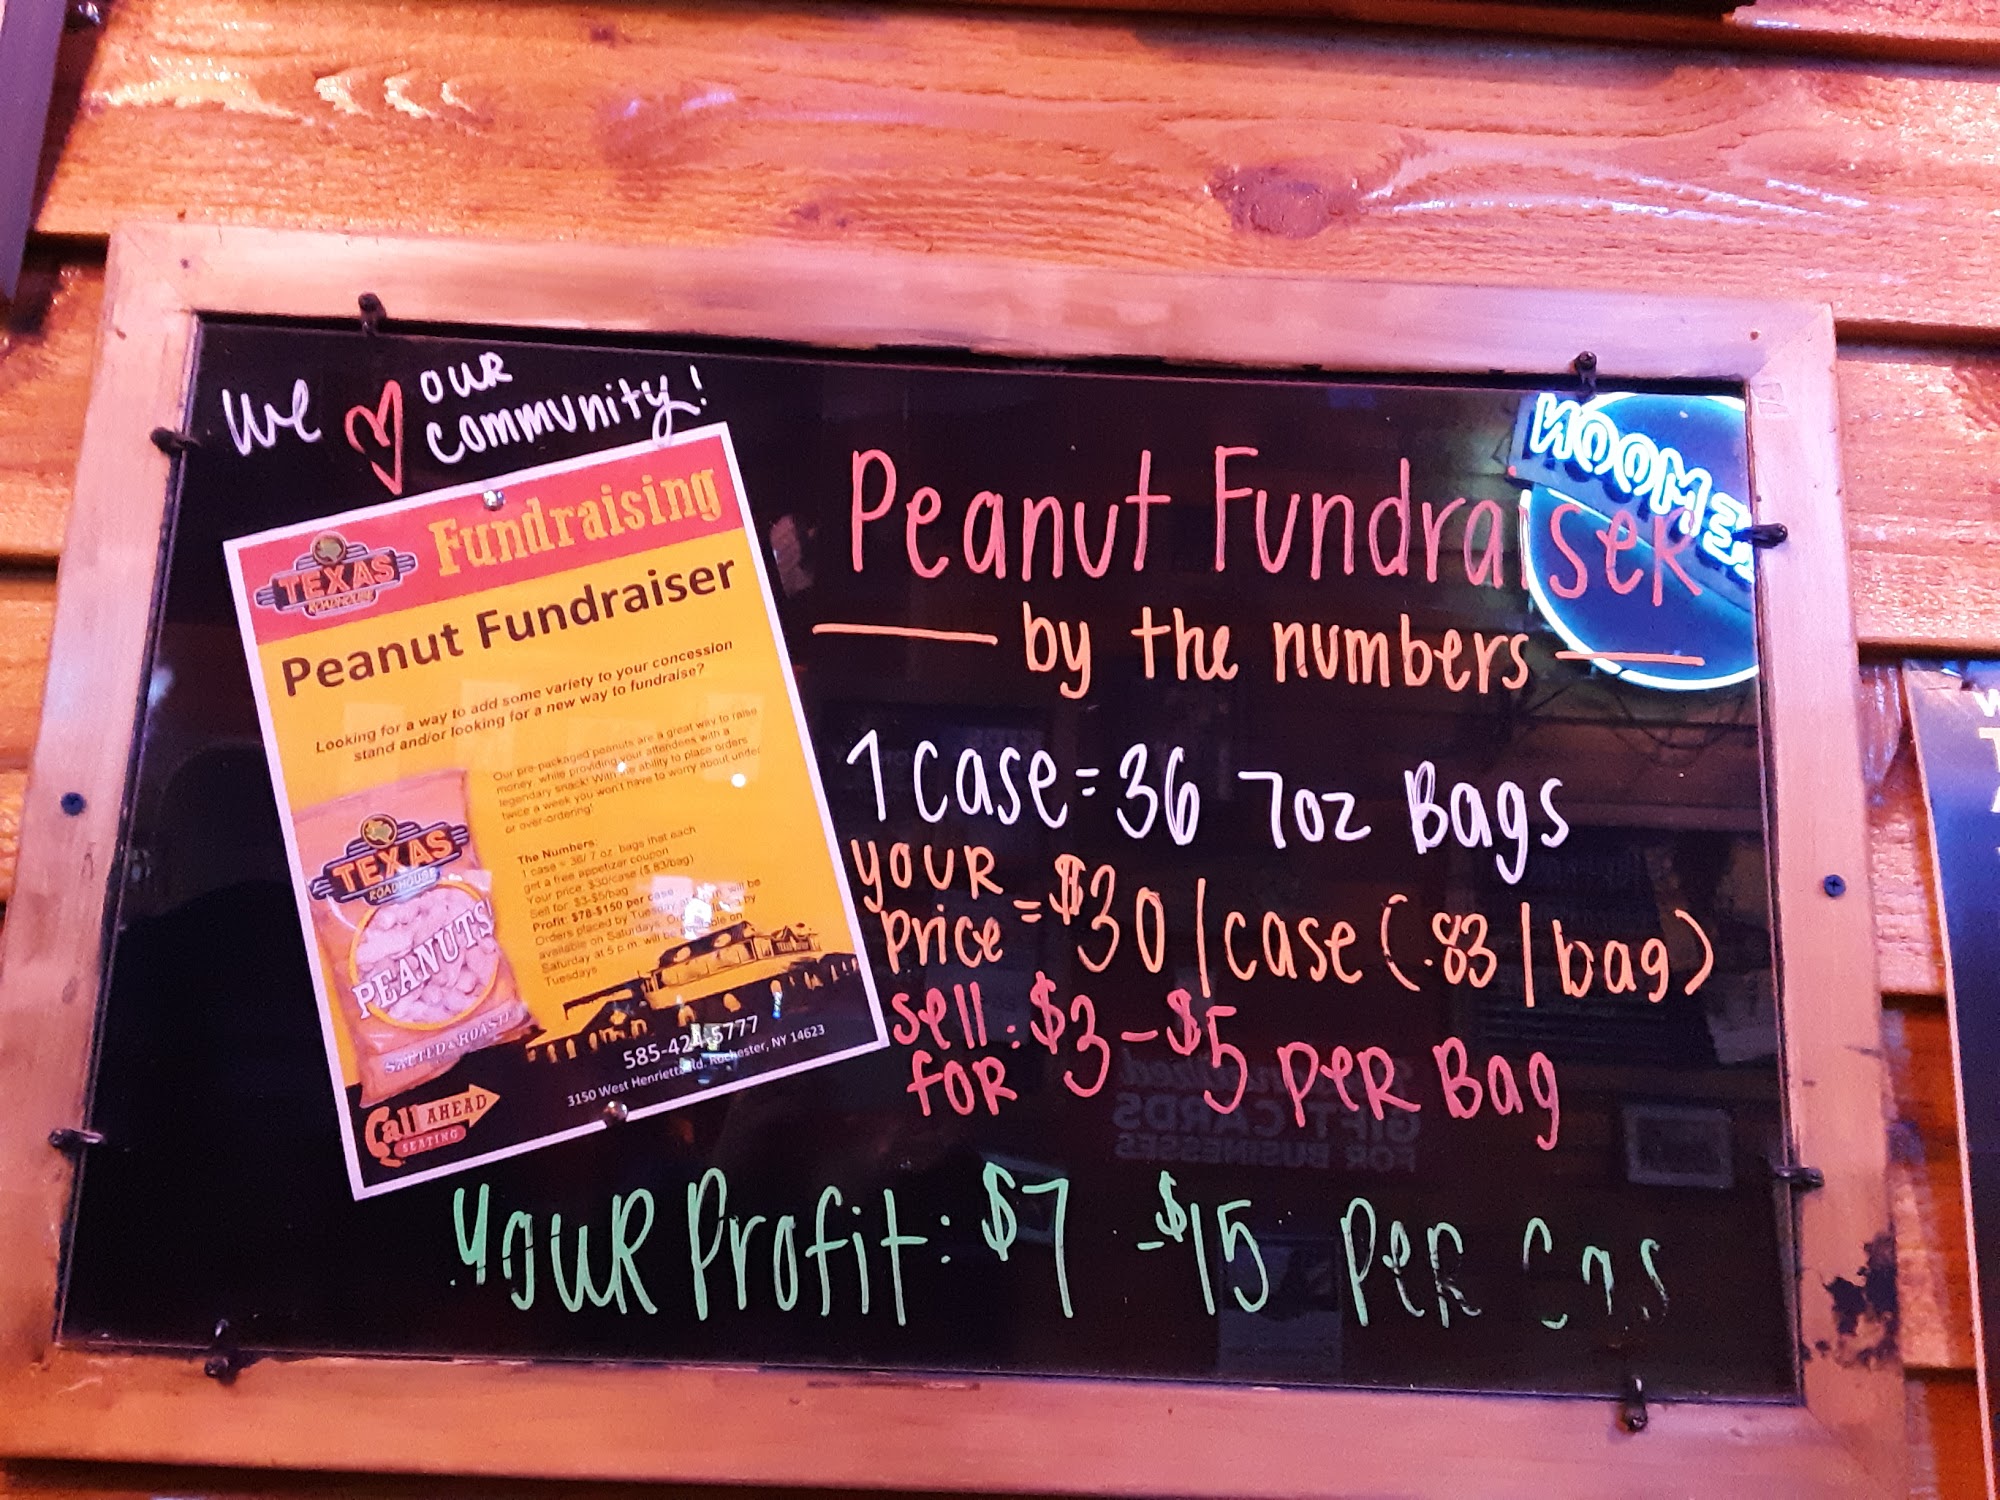 We ♡ our
community!
TEXAS
ROADHOUSE
Fundraising
Peanut Fundraiser
Looking for a way to add some variety to your concession
stand and/or looking for a new way to fundraise?
Our pre-packaged peanuts are a great way to raise
money, while providing your attendees with a
legendary snack! With the ability to place orders
twice a week you won't have to worry about under
or over-ordering!
The Numbers:
1 case = 36/ 7 oz. bags that each
get a free appetizer coupon
Your price: $30/case ($.83/bag)
Sell for: $3-$5/bag
Profit: $78-$150 per case
Orders placed by Tuesday at will be
available on Saturdays. by
Saturday at 5 p.m. will be available on
Tuesdays
TEXAS
ROADHOUSE
PEANUTS
SALTED & ROASTED
585-424-5777
3150 West Henrietta Rd. Rochester, NY 14623
Call AHEAD
SEATING
Peanut Fundraiser
by the numbers
1 case = 36 7oz Bags
your price = $30/case (.83/bag)
sell for: $3-$5 per Bag
your Profit: $7 -$15 per
GIFT CARDS
FOR BUSINESSES